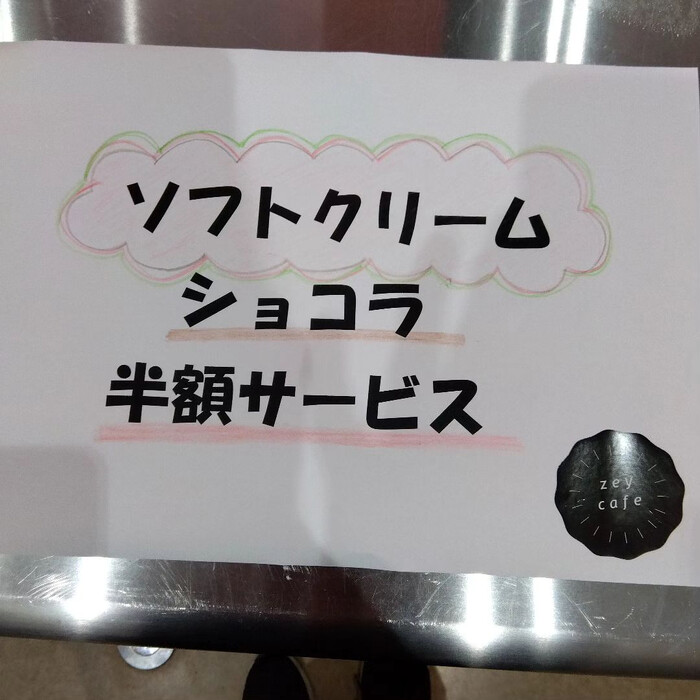 ソフトクリーム
ショコラ
半額サービス
zey
cafe